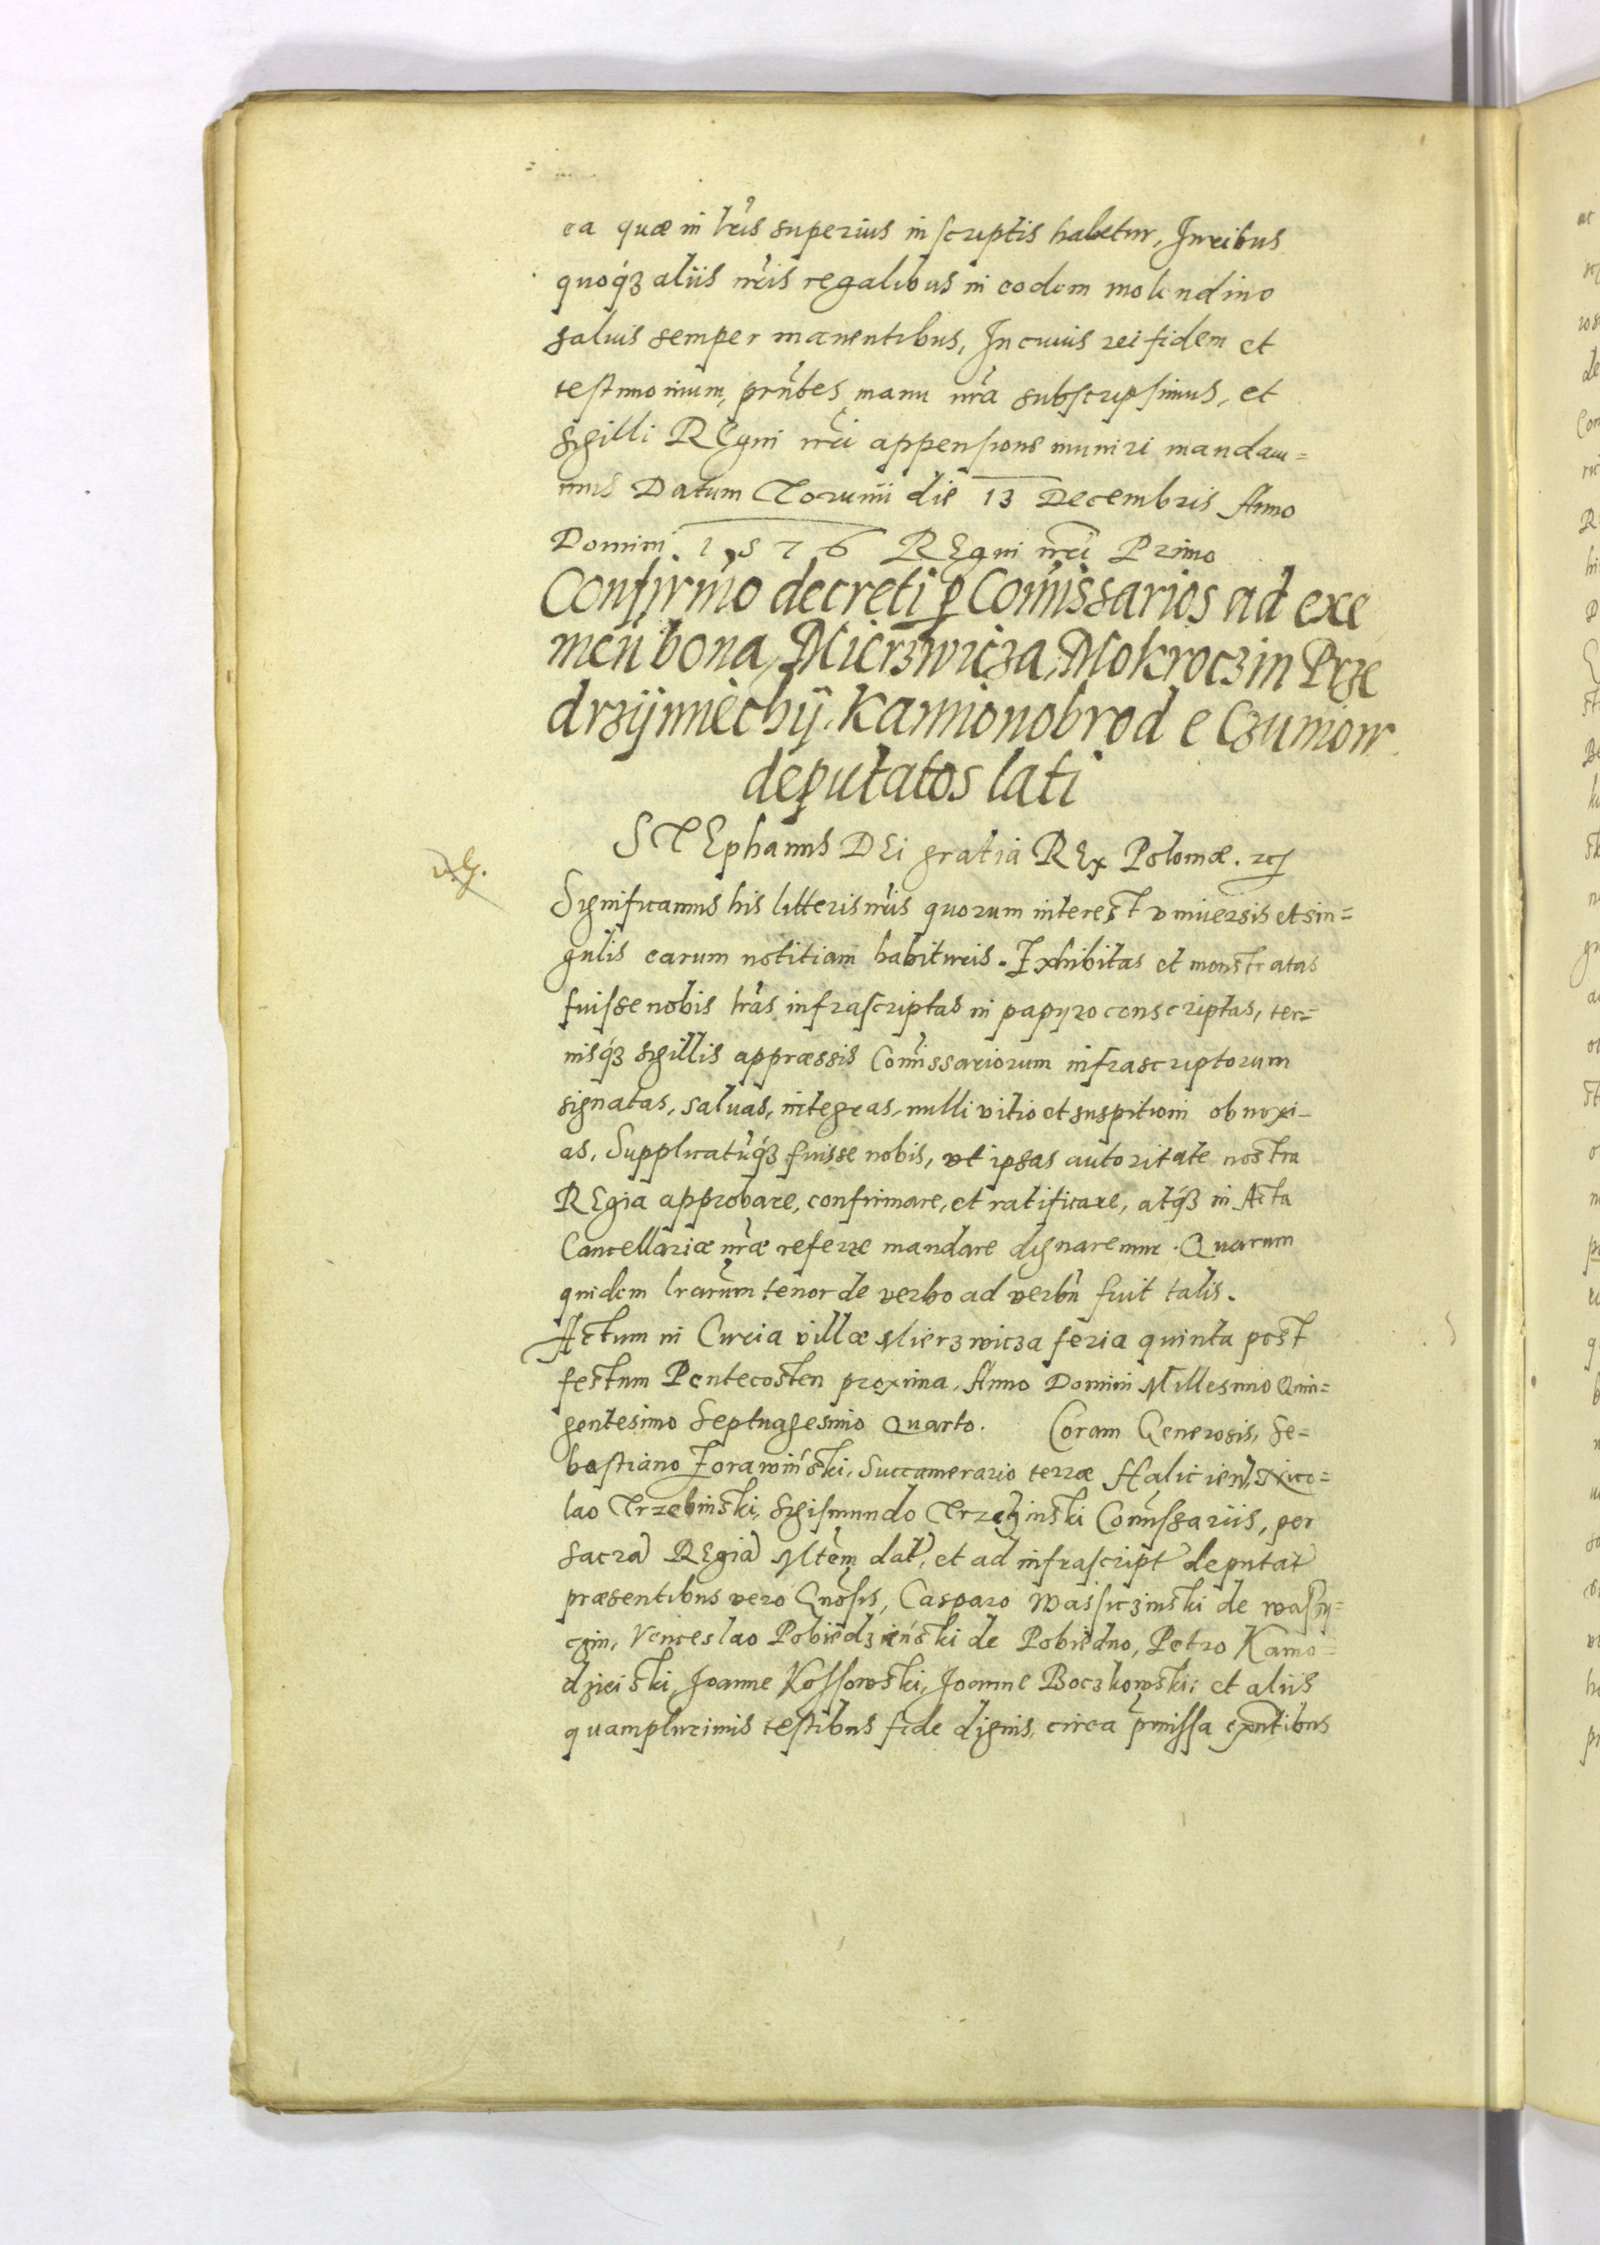 ea quæ in lris superius inscriptis habetur, Iuribus
quoq́ʒ aliis nris regalibus in eodem molendino
saluis semper manentibus, In cuius rei fidem et
testimonium, prntes manu nra subscripsimus, et
sigilli REgni nri appensione muniri mandaui=
mus Datum Torunii die 13 Decembris Anno
Domini 1576 REgni nri Primo
Confirmo decreti ꝑ Comissarios ad exe
men bona, Mierzwicza, Mokroczin Prze
drzÿmiechÿ. Kamionobrod e Czuniow
deputatos lati
STEphanus DEi gratia REx Poloniæ. ꝛc
Significamus his litteris nris quorum interest vniuersis et sin=
gulis earum notitiam habituris. Exhibitas et monstratas
fuisse nobis lras infrascriptas in papyro conscriptas, ter=
nisq́ʒ sigillis appræssis Comissariorum infrascriptorum
signatas, saluas, integras, nulli vitio et suspitioni obnoxi-
as, Supplicatuq́ʒ fuisse nobis, vt ipsas autoritate nostra
REgia approbare, confirmare, et ratificare, atq́ʒ in Acta
Cancellariæ nræ referre mandare dignaremur. Quarum
quidem lrarum tenor de verbo ad verbu fuit talis.
Actum in Curia villæ Mierzwicza feria quinta post
festum Pentecosten proxima. Anno Domini Millesimo Quin=
gentesimo Septuagesimo Quarto. Coram Generosis, Se=
bastiano Zorawiński, Succamerario terræ Halicien, Nico=
lao Trzebinski, Sigismundo Trzebinski Comissariis, per
Sacra REgia Mtem dat, et ad infrascript deputat
præsentibus vero Gnosis, Casparo Wassiczinski de Wassy=
czin, Venceslao Pobiedzieński de Pobiedno, Petro Kamo=
dzieiski, Joanne Kossowski, Joanne Boczkowski, et aliis
quamplurimis testibus fide dignis, circa pmissa exntibus